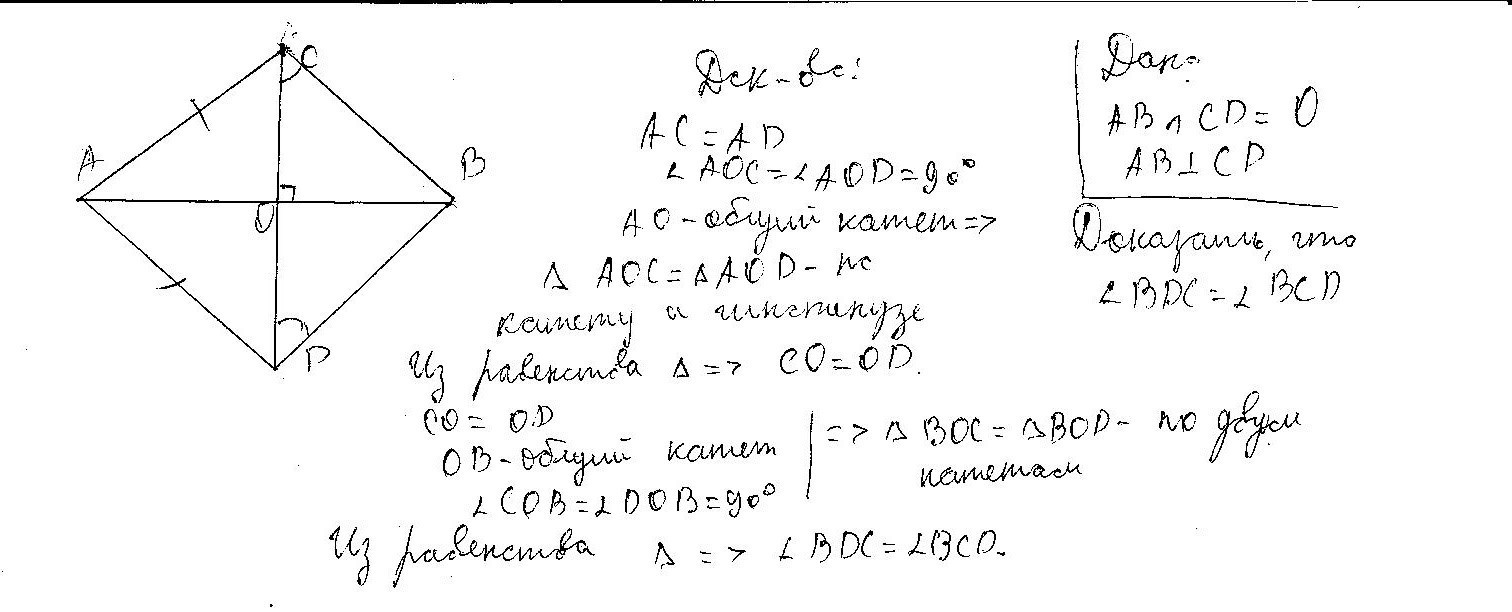 C
A
B
O
D
Дано:
AB ∩ CD = O
AB ⊥ CD
Доказать, что
∠ BDC = ∠ BCD
Док-во:
AC = AD
∠ AOC = ∠ AOD = 90°
AO - общий катет =>
Δ AOC = Δ AOD - по
катету и гипотенузе
Из равенства Δ => CO = OD.
CO = OD
OB - общий катет
∠ COB = ∠ DOB = 90°
=> Δ BOC = Δ BOD - по двум
катетам
Из равенства Δ => ∠ BDC = ∠ BCD.